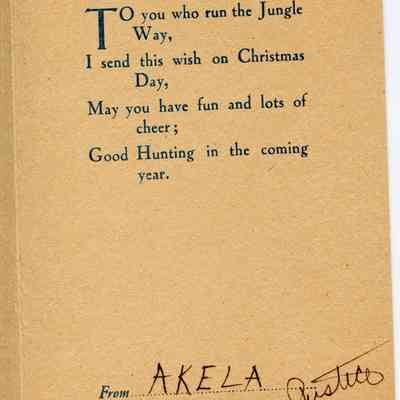 TO you who run the Jungle
Way,
I send this wish on Christmas
Day,
May you have fun and lots of
cheer;
Good Hunting in the coming
year.
From AKELA